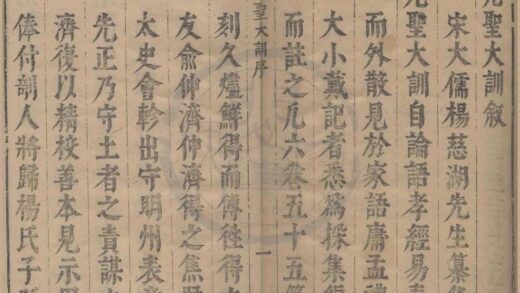 聖大訓叙
宋大儒楊慈湖先生纂
聖大訓自論語孝經易春
而外散見於家語庸孟禮
大小戴記者悉爲採集
而註之凡六卷五十五篇
聖大訓序
一
刻久燼鮮得而傳徃得
友俞仲濟仲濟得之焦
太史會軫出守明州表章
先正乃守土者之責謀
濟復以精校善本見示
俸付剞人將歸楊氏子